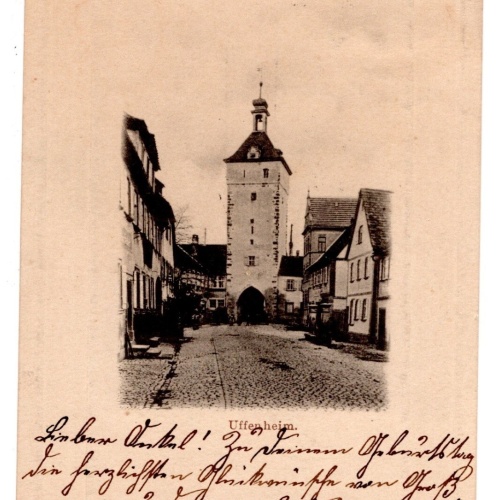 Uffenheim.
Lieber Onkel! Zu Deinem Geburtstag
die herzlichsten Glückwünsche von Groß